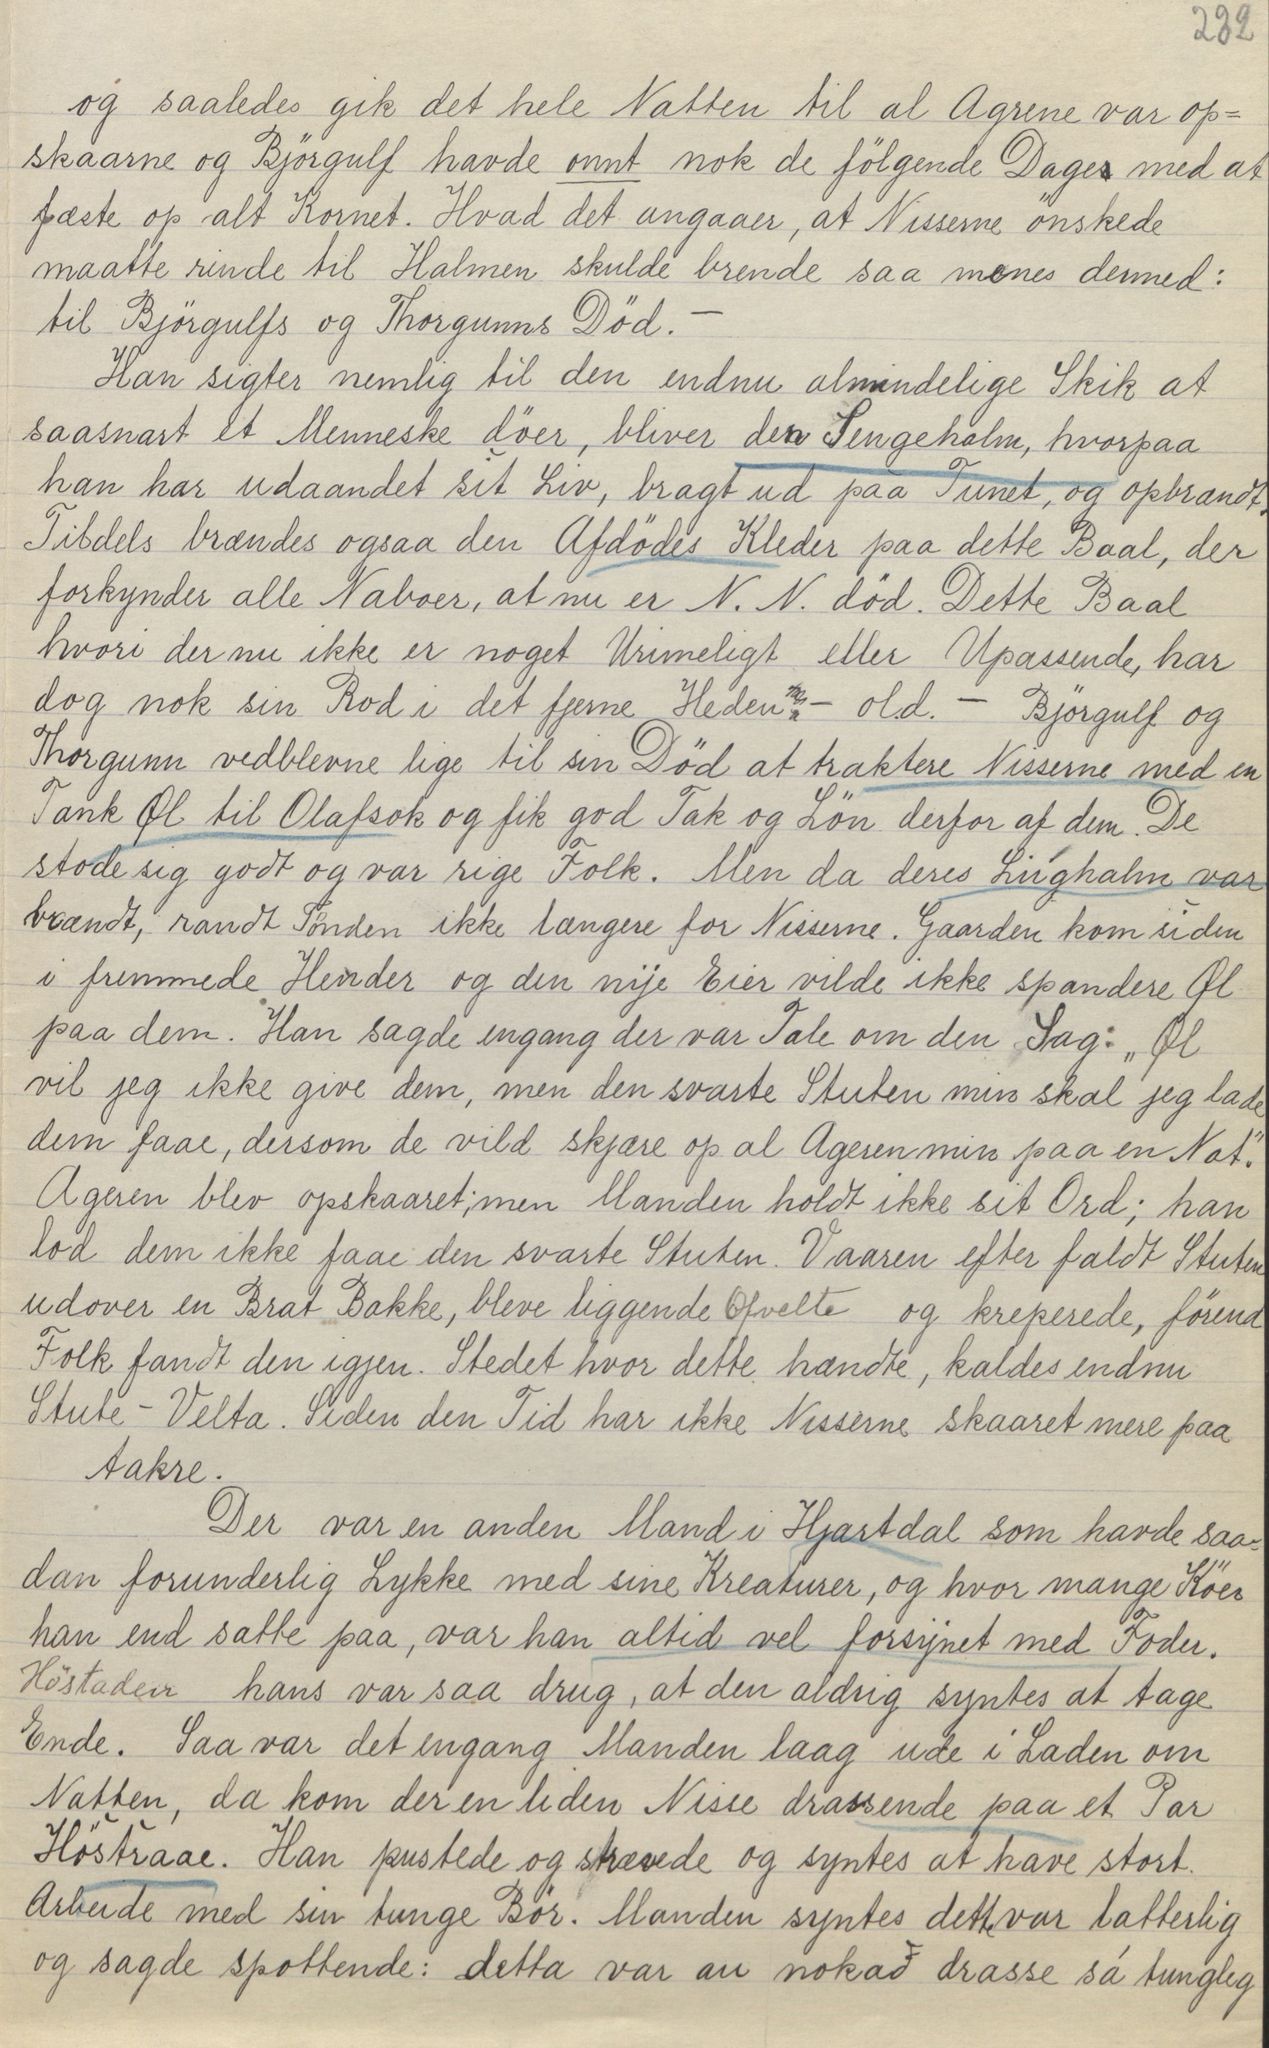 232
og saaledes gik det hele Natten til al Agrene var op=
skaarne og Björgulf havde onnt nok de fölgende Dager med at
fæste op alt Kornet. Hvad det angaaer, at Nisserne önskede
maatte rinde til Halmen skulde brende saa menes dermed:
til Björgulfs og Thorgunns Död. –
Han sigter nemlig til den endnu almindelige Skik at
saasnart et Menneske döer, bliver den Sengehalm, hvorpaa
han har udaandet sit Liv, bragt ud paa Tunet, og opbrandt.
Tildels brændes ogsaa den Afdödes Kleder paa dette Baal, der
forkynder alle Naboer, at nu er N. N. död. Dette Baal
hvori der nu ikke er noget Urimeligt eller Upassende, har
dog nok sin Rod i det fjerne Heden – old. – Björgulf og
Thorgunn vedblevne lige til sin Död at traktere Nisserne med en
Tank Øl til Olafsok og fik god Tak og Lön derfor af dem. De
stode sig godt og var rige Folk. Men da deres Lughalm var
brændt, randt Tönden ikke længere for Nisserne. Gaarden kom siden
i fremmede Hender og den nije Eier vilde ikke spandere Øl
paa dem. Han sagde engang der var Tale om den Sag: „Øl
vil jeg ikke give dem, men den svarte Stuten min skal jeg lade
dem faae, dersom de vild skjære op al Ageren min paa en Nat."
Ageren blev opskaaret; men Manden holdt ikke sit Ord; han
lod dem ikke faae den svarte Stuten. Vaaren efter faldt Stuten
udover en Brat Bakke, bleve liggende Ofvelte og kreperede, förend
Folk fandt den igjen. Stedet hvor dette hændte, kaldes endnu
Stute – Velta. Siden den Tid har ikke Nisserne skaaret mere paa
Aakre.
Der var en anden Mand i Hjartdal som havde saa=
dan forunderlig Lykke med sine Kreaturer, og hvor mange Köer
han end satte paa, var han altid vel forsijnet med Foder.
Höstaden hans var saa drug, at den aldrig syntes at tage
Ende. Saa var det engang Manden laag ude i Laden om
Natten, da kom der en liden Nisse drassende paa et Par
Höstraae. Han pustede og strævede og syntes at have stort
Arbeide med sin tunge Bör. Manden syntes dette var latterlig
og sagde spottende: detta var au nokað drasse så tungleg